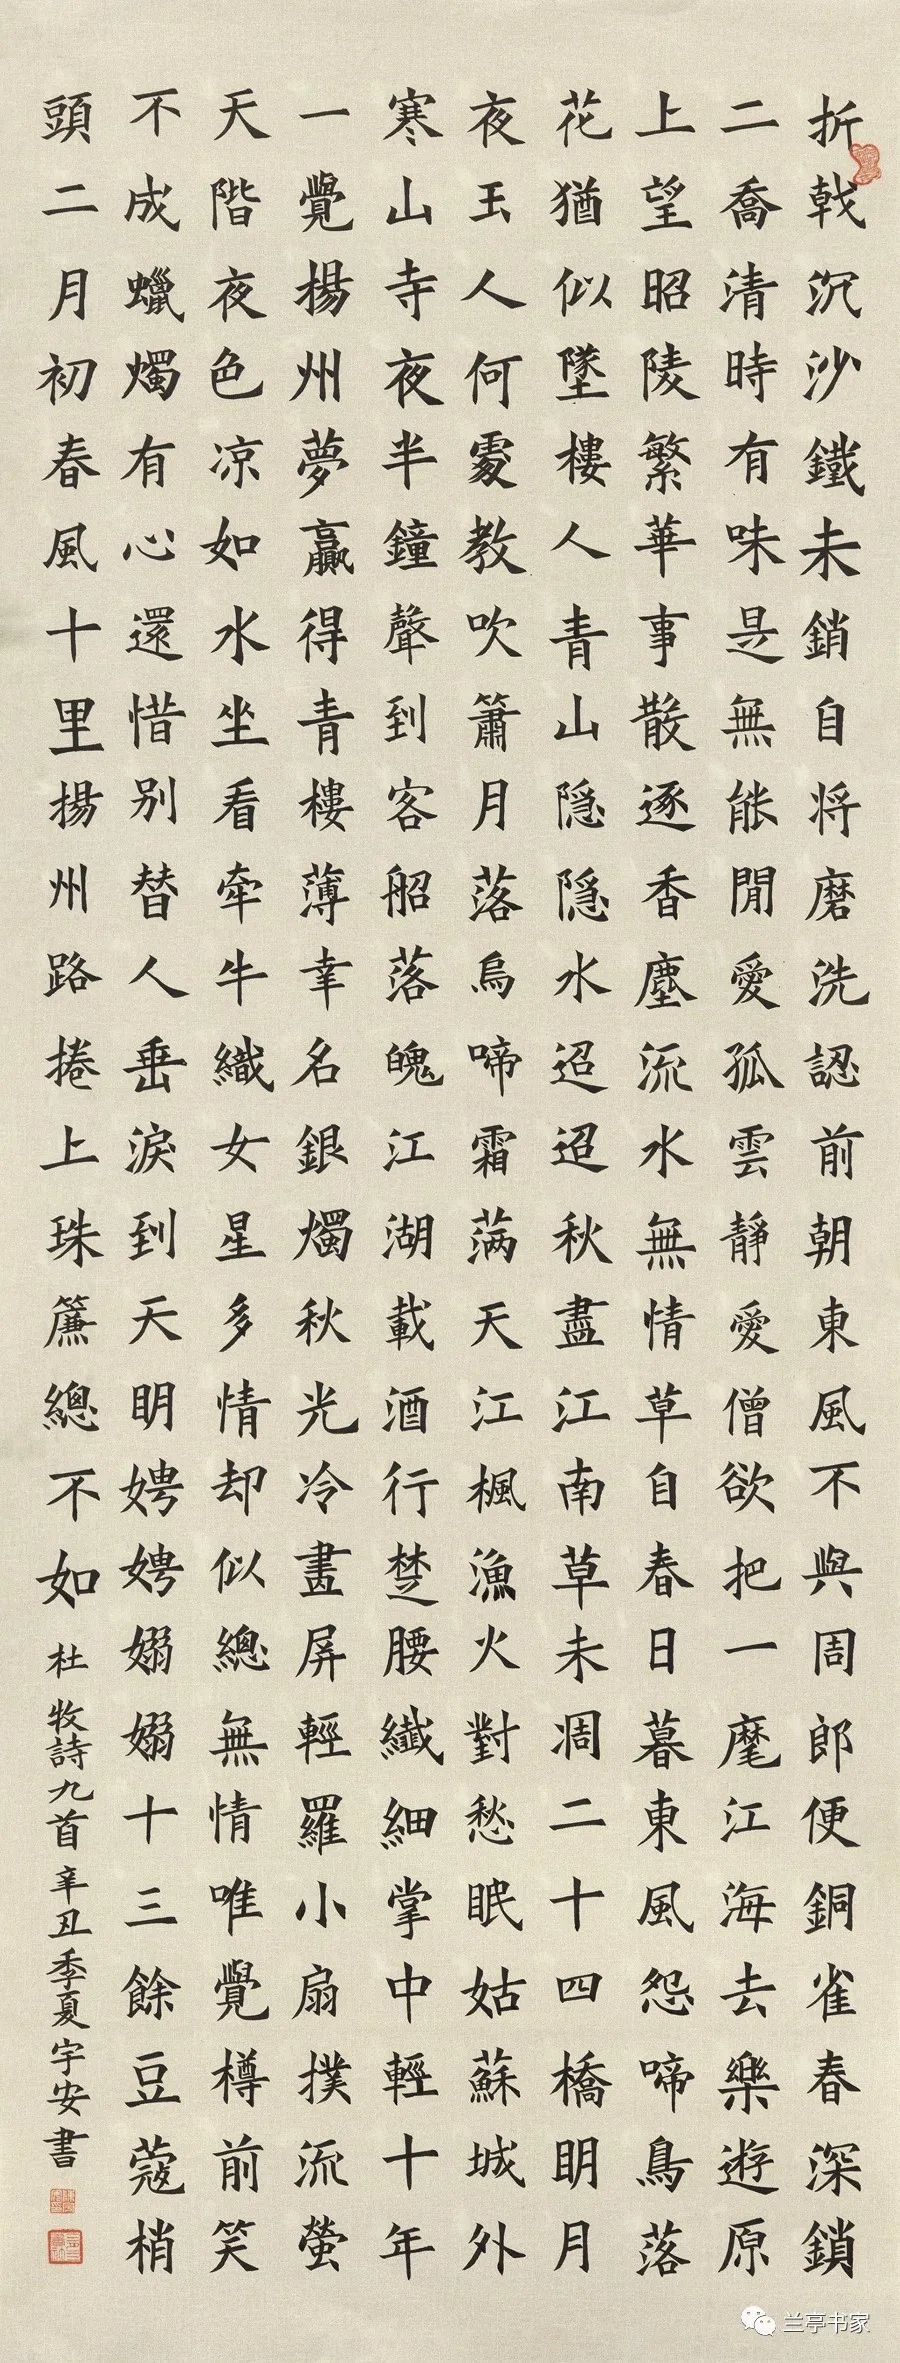 折戟沉沙鐵未銷自将磨洗認前朝東風不與周郎便銅雀春深鎖
二喬清時有味是無能閒愛孤雲靜愛僧欲把一麾江海去樂遊原
上望昭陵繁華事散逐香塵流水無情草自春日暮東風怨啼鳥落
花猶似墜樓人青山隐隐水迢迢秋盡江南草未凋二十四橋明月
夜玉人何處教吹簫月落烏啼霜满天江楓漁火對愁眠姑蘇城外
寒山寺夜半鐘聲到客船落魄江湖載酒行楚腰纖細掌中輕十年
一覺揚州夢贏得青樓薄幸名銀燭秋光冷畫屏輕羅小扇撲流螢
天階夜色凉如水坐看牽牛織女星多情却似總無情唯覺樽前笑
不成蠟燭有心還惜別替人垂淚到天明娉娉嫋嫋十三餘豆蔻梢
頭二月初春風十里揚州路捲上珠簾總不如 杜牧詩九首辛丑季夏宇安書
兰亭书家